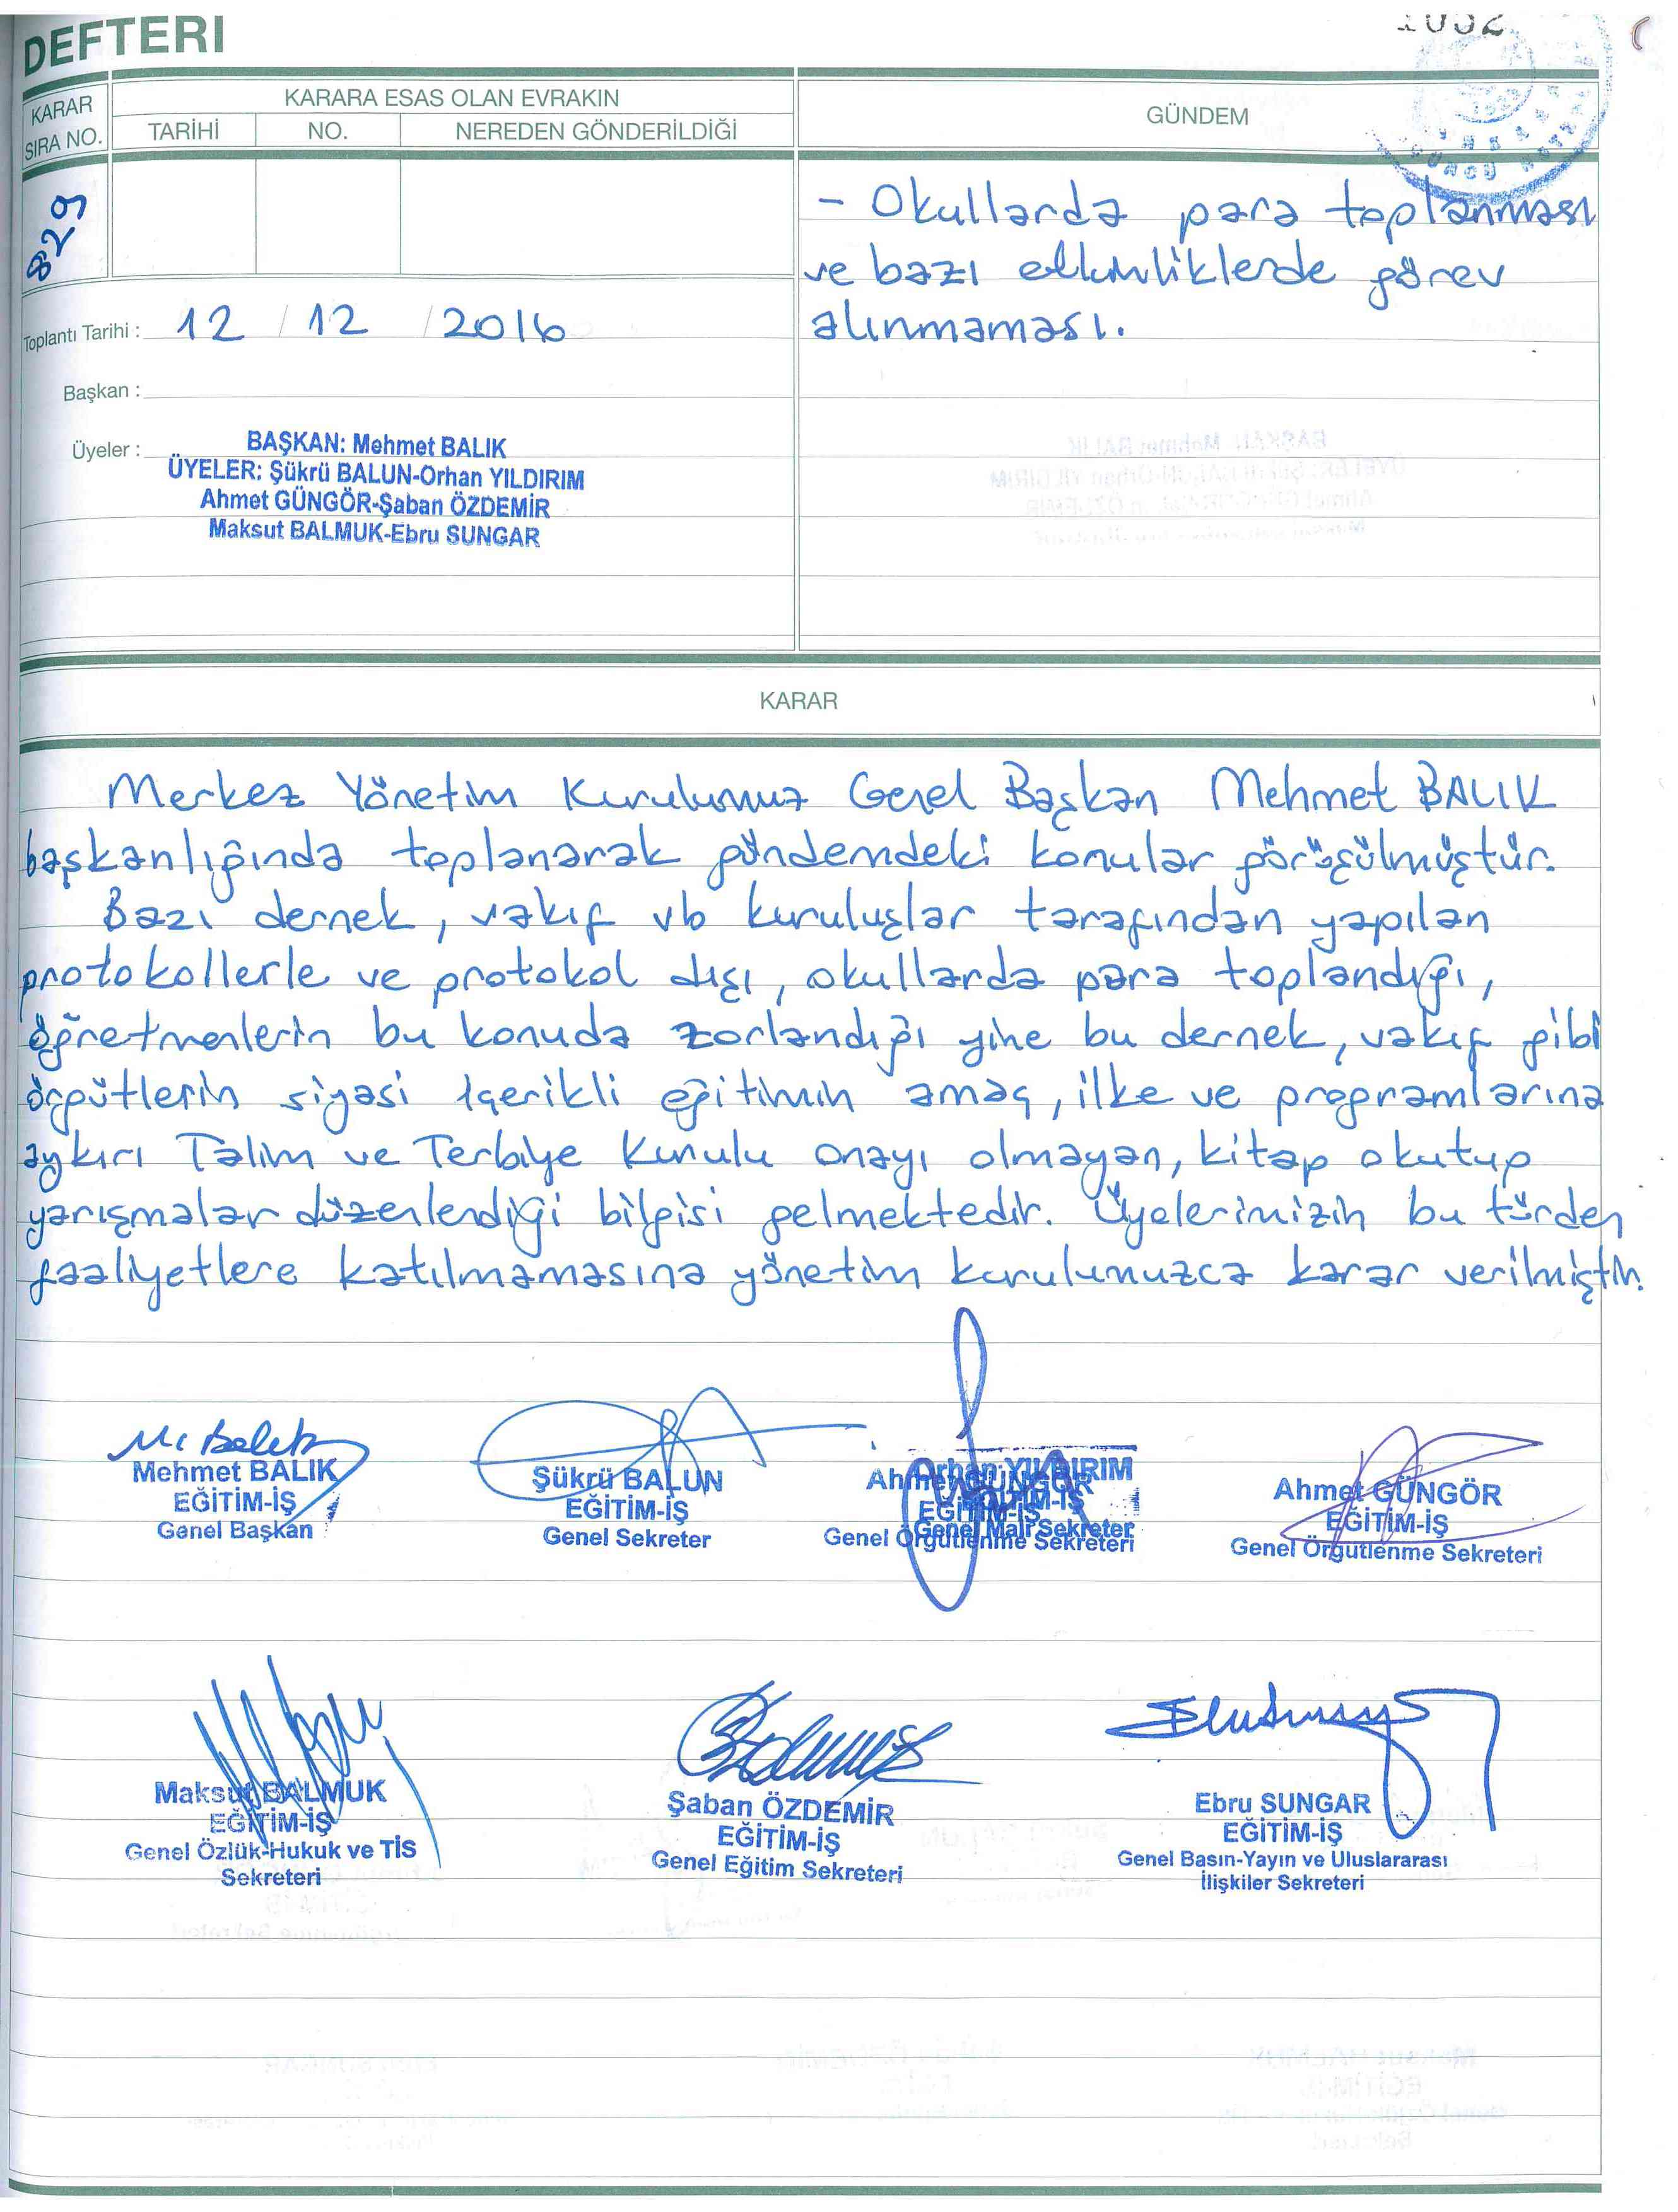 DEFTERİ
KARAR
SIRA NO.
KARARA ESAS OLAN EVRAKIN
TARİHİ NO. NEREDEN GÖNDERİLDİĞİ
GÜNDEM
829
- Okullarda para toplanması
ve bazı etkinliklerde görev
alınmaması.
Toplantı Tarihi : 12 / 12 / 2016
Başkan :
Üyeler :
BAŞKAN: Mehmet BALIK
ÜYELER: Şükrü BALUN-Orhan YILDIRIM
Ahmet GÜNGÖR-Şaban ÖZDEMİR
Maksut BALMUK-Ebru SUNGAR
KARAR
Merkez Yönetim Kurulumuz Genel Başkan Mehmet BALIK
başkanlığında toplanarak gündemdeki konular görüşülmüştür.
Bazı dernek, vakıf vb kuruluşlar tarafından yapılan
protokollerle ve protokol dışı, okullarda para toplandığı,
öğretmenlerin bu konuda zorlandığı yine bu dernek, vakıf gibi
örgütlerin siyasi içerikli eğitimin amaç, ilke ve programlarına
aykırı Talim ve Terbiye Kurulu onayı olmayan, kitap okutup
yarışmalar düzenlendiği bilgisi gelmektedir. Üyelerimizin bu türden
faaliyetlere katılmamasına yönetim kurulumuzca karar verilmiştir.
Mehmet BALIK
EĞİTİM-İŞ
Genel Başkan
Şükrü BALUN
EĞİTİM-İŞ
Genel Sekreter
Orhan YILDIRIM
EĞİTİM-İŞ
Genel Mali Sekreter
Ahmet GÜNGÖR
EĞİTİM-İŞ
Genel Örgütlenme Sekreteri
Ahmet GÜNGÖR
EĞİTİM-İŞ
Genel Örgütlenme Sekreteri
Maksut BALMUK
EĞİTİM-İŞ
Genel Özlük-Hukuk ve TİS
Sekreteri
Şaban ÖZDEMİR
EĞİTİM-İŞ
Genel Eğitim Sekreteri
Ebru SUNGAR
EĞİTİM-İŞ
Genel Basın-Yayın ve Uluslararası
İlişkiler Sekreteri